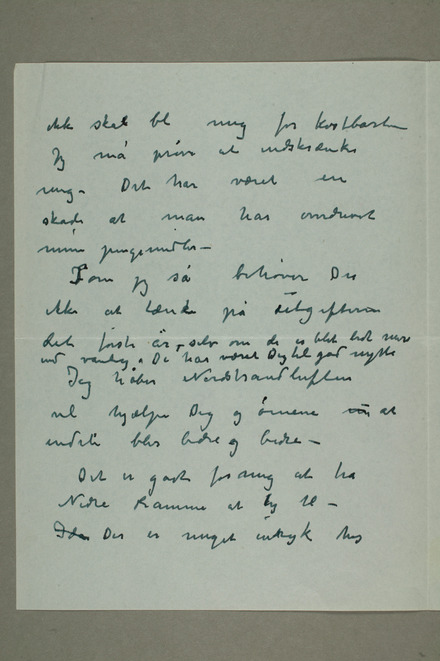 ikke skal bli mig for kostbart
Jeg må prøve at indskrænke
mig – Det har været en
skade at man har overdrevet
mine pengemidler –
som jeg så behøver Du
ikke at tænke på utgifterne
det første år – selv om de er blet lidt mer
end vanlig. Det har været Dig til god nytte
Jeg håber Nordstrandluften
vil hjælpe Dig og øinene at
endeli blir bedre og bedre –
Det er godt for mig at ha
Nedre Ramme at ty til –
Der er meget indryk hos